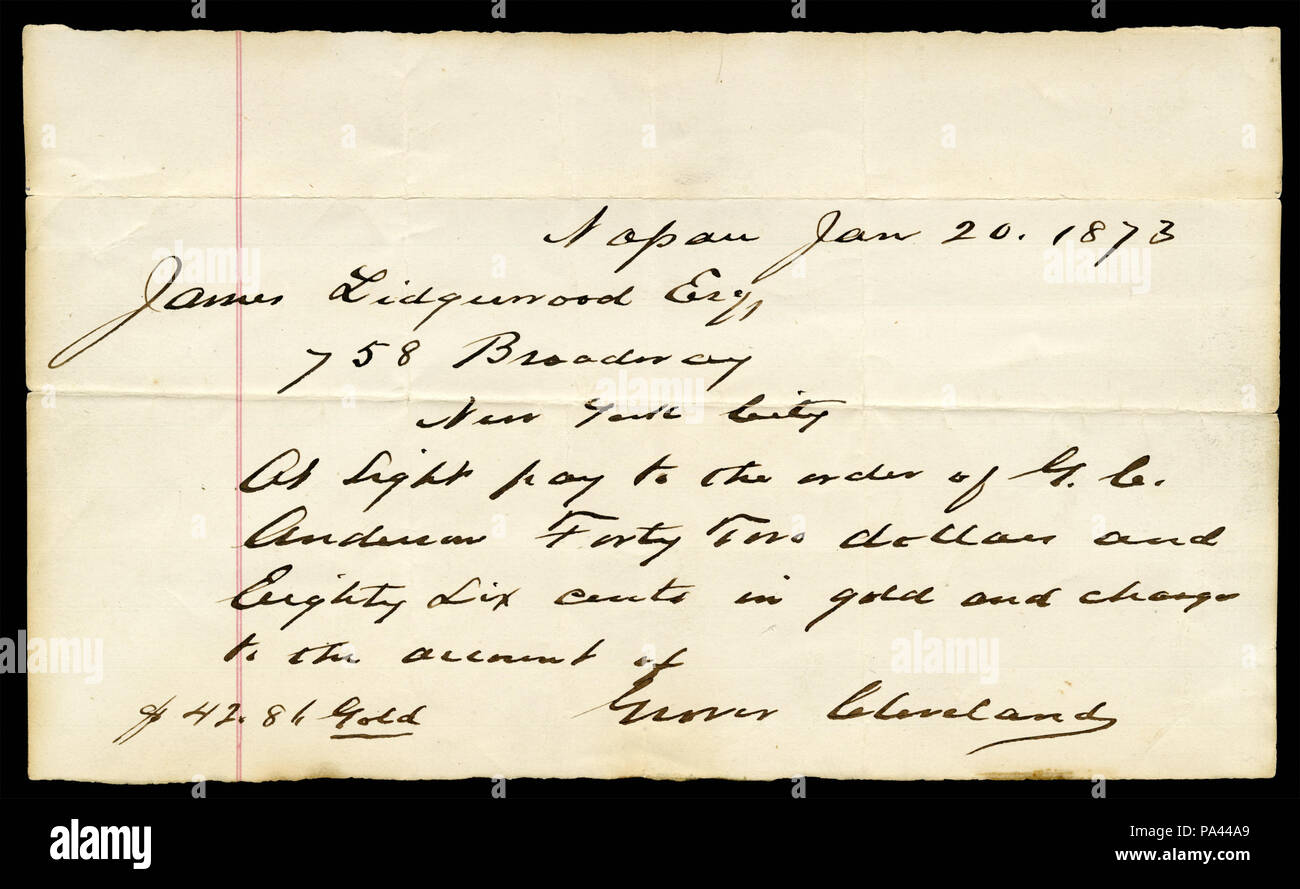 Napau Jan 20. 1873
James Lidgerwood Esq,
758 Broadway
New York City
At Sight pay to the order of G. C.
Anderson Forty Two dollars and
Eighty Six cents in gold and charge
to the account of
$42.86 Gold Grover Cleveland
alamy
Image ID: PA44A9
www.alamy.com